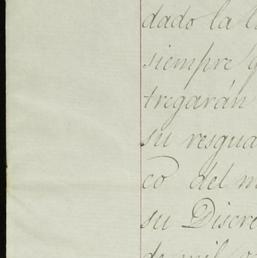 dado la
siempre
tregarán
su resgua
co del m
su Discre
de mil